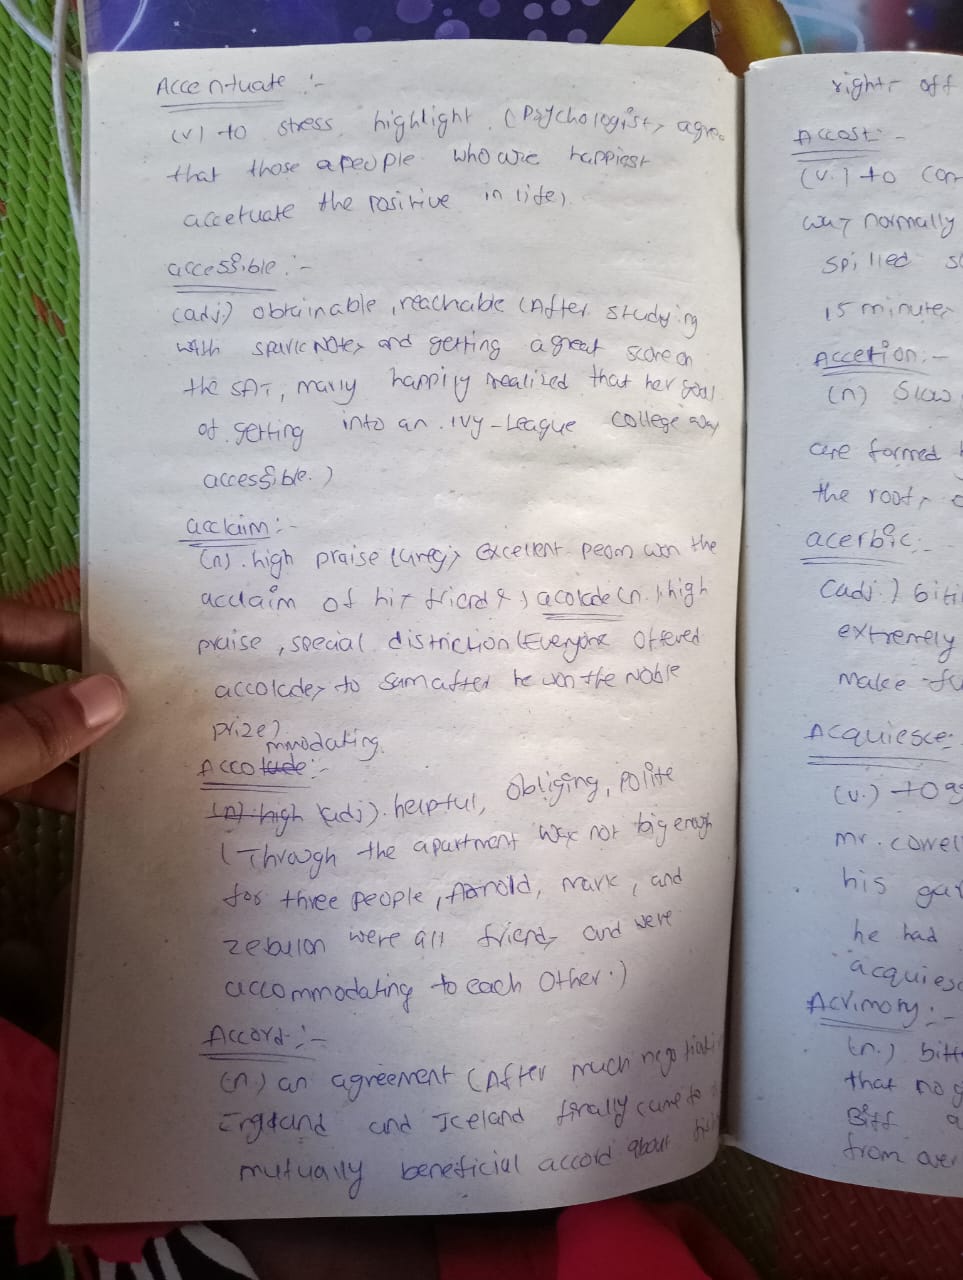 Accentuate :-
(v) to stress, highlight (Psychologists agree
that those apeuple who are happiest
accetuate the positive in life).
accessible :-
(adj) obtainable, reachable (After studying
with sparkNotes and getting a great score on
the SAT, marly happily realized that her goal
of getting into an Ivy-League college way
accessible.)
acclaim :-
(n). high praise (Greg's excellent peom won the
acclaim of his friends) acolade (n.) high
praise, special distriction (Everyone offered
accolades to Sam after he won the Noble
prize)
mmodating
Acco :-
(adj). helpful, obliging, polite
(Through the apartment was not big enough
for three people, Arnold, mark, and
zebulon were all friends and were
accommodating to each other.)
Accord :-
(n) an agreement (After much
England and Iceland finally came to
mutually beneficial accord about
rights off
Accost :-
(v.) to con
way normally
spilled
15 minutes
Accetion :-
(n) Slow
are formed
the roots
acerbic :-
(adj.) biti
extremely
make fu
Acquiesce
(v.) to ag
mr. cowel
his gu
he had
acquiesc
Acrimony :-
(n.) bitt
that no g
Biff a
from over